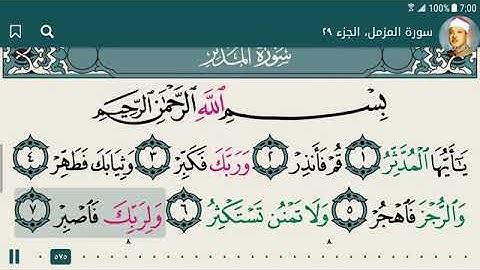 100% 7:00
سورة المزمل، الجزء ٢٩
سُورَةُ المُدَّثِّرِ
بِسْمِ اللَّهِ الرَّحْمَٰنِ الرَّحِيمِ
يَا أَيُّهَا الْمُدَّثِّرُ ١ قُمْ فَأَنذِرْ ٢ وَرَبَّكَ فَكَبِّرْ ٣ وَثِيَابَكَ فَطَهِّرْ ٤
وَالرُّجْزَ فَاهْجُرْ ٥ وَلَا تَمْنُن تَسْتَكْثِرُ ٦ وَلِرَبِّكَ فَاصْبِرْ ٧
٨ ٨
٥٧٥